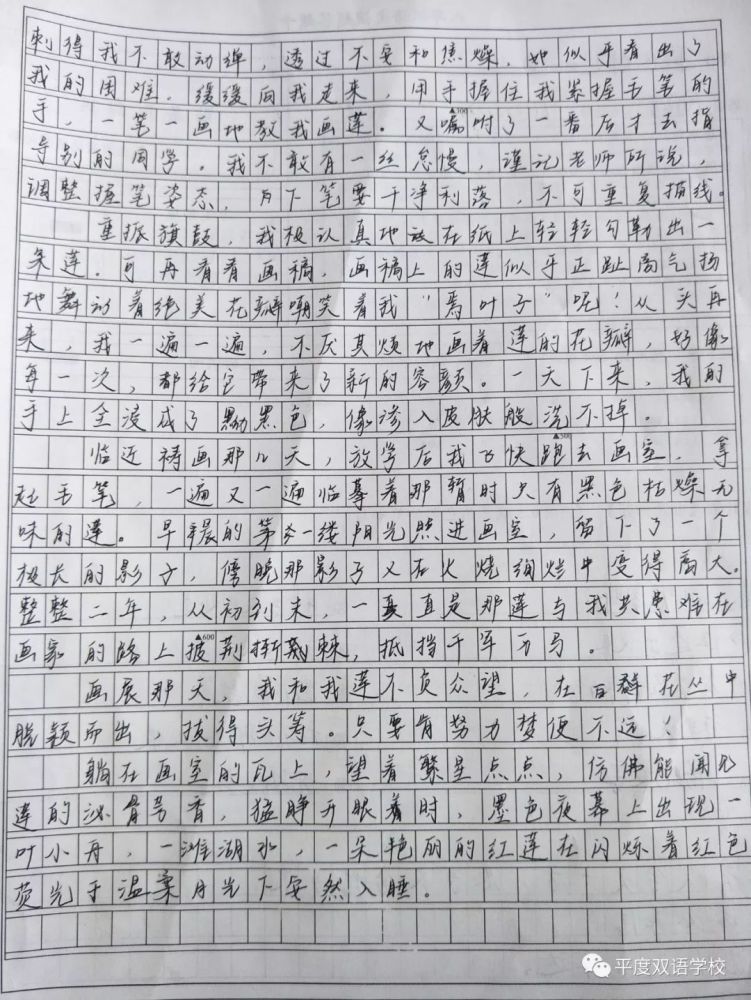 刺得我不敢动弹，透过不安和焦燥，她似乎看出了
我的困难，缓缓向我走来，用手握住我紧握毛笔的
手，一笔一画地教我画莲。又嘱咐了一番后才去指
导别的同学。我不敢有一丝怠慢，谨记老师所说，
调整握笔姿态，月下笔要干净利落，不可重复描线。
重振旗鼓，我极认真地放在纸上轻轻勾勒出一
朵莲。可再看看画稿，画稿上的莲似乎正趾高气扬
地舞动着绝美花瓣嘲笑着我"焉叶子"呢！从头再
来，我一遍一遍，不厌其烦地画着莲的花瓣，好像
每一次，都给它带来了新的容颜。一天下来，我的
手上全浸成了黝黑色，像渗入皮肤般洗不掉。
临近祷画那几天，放学后我飞快跑去画室，拿
起毛笔，一遍又一遍临摹着那暂时只有黑色枯燥无
味的莲。早晨的第一缕阳光照进画室，留下了一个
极长的影子，傍晚那影子又在火烧绚烂中变得高大。
整整二年，从初到末，一直是那莲与我共患难在
画家的路上披荆斩棘，抵挡千军万马。
画展那天，我和我莲不负众望，在百群花丛中
脱颖而出，拔得头筹。只要肯努力梦便不远！
躺在画室的瓦上，望着繁星点点，仿佛能闻见
莲的泌骨芳香，猛睁开眼着时，墨色夜幕上出现一
叶小舟，一滩湖水，一朵艳丽的红莲在闪烁着红色
荧光于温柔月光下安然入睡。
▲300
▲500
▲600
平度双语学校